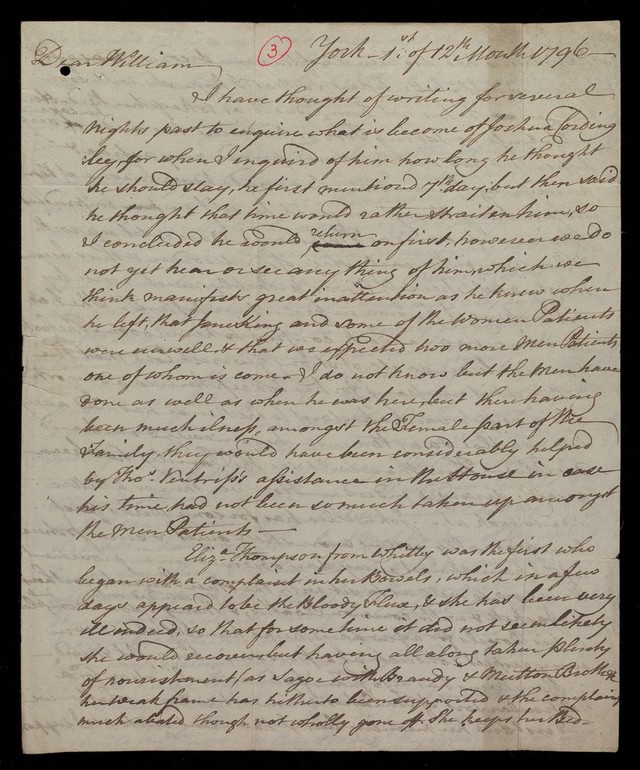 Dear William
3
York - 1st of 12th Month 1796 -
I have thought of writing for several
nights past to enquire what is become of Joshua Fording
ley, for when I enquired of him how long he thought
he should stay, he first mention'd 7th day; but then said
he thought that time would rather straiten him, so
I concluded he would return on first, however we do
not yet hear or see any thing of him, which we
think manifests great inattention as he knew when
he left, that Jane King and some of the Women Patients
were unwell & that we expected two more Men Patients
one of whom is come. I do not know but the Men have
done as well as when he was here, but there having
been much illness, amongst the Female part of the
Family, they would have been considerably helped
by Thos. Ventriss's assistance in the House in case
his time had not been so much taken up amongst
the Men Patients —
Eliza Thompson from Whitby was the first who
began with a complaint in her Bowels, which in a few
days appeard to be the Bloody Flux, & she has been very
ill indeed, so that for some time it did not seem likely
she would recover, but having all along taken plenty
of nourishment, as Sago with Brandy & Mutton Broth &c
her weak frame has hitherto been supported & the complaint
much abated though not wholly gone off. She keeps her Bed -